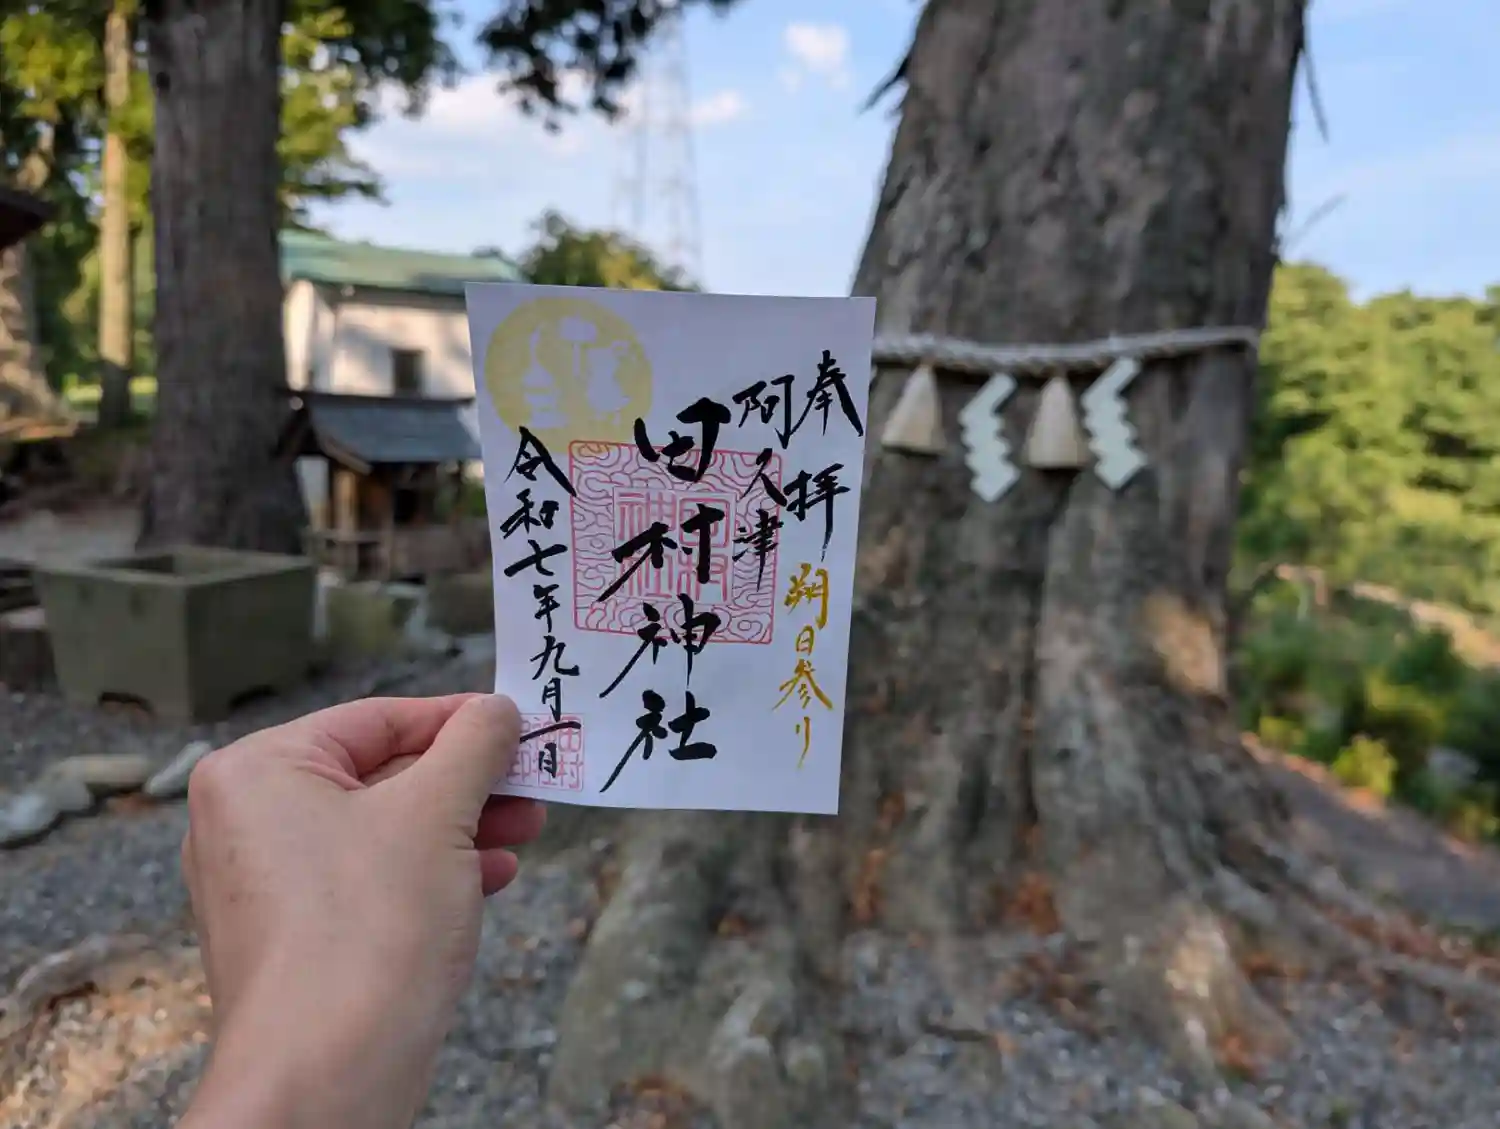 奉拝
朔日参り
阿久津
田村神社
令和七年九月一日
田村神社